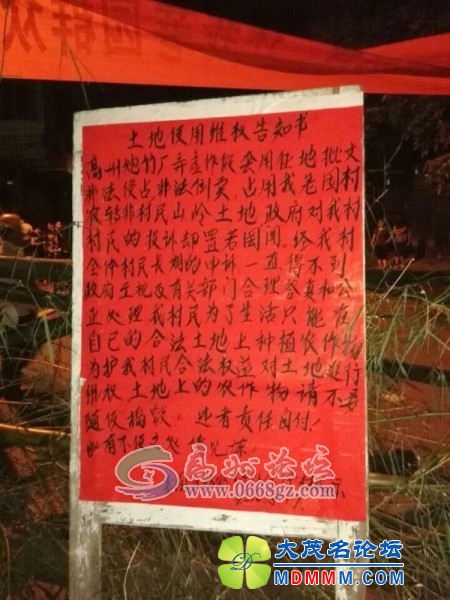 园群众
土地使用维权告知书
高州炮竹厂弄虚作假套用征地批文
非法侵占非法倒卖，占用我老围村
农转非村民山岭土地政府对我村
村民的投诉却置若罔闻。给我村
全体村民长期的申诉一直得不到
政府正视及有关部门合理答复和公
正处理我村民为了生活只能在
自己的合法土地上种植农作物
为护我村民合法权益对土地进行
维权 土地上的农作物请不要
随仪损毁。违者责任自付！
如有不便之处 敬见谅
高州论坛
www.0668gz.com
示
大茂名论坛
MDMMM.COM